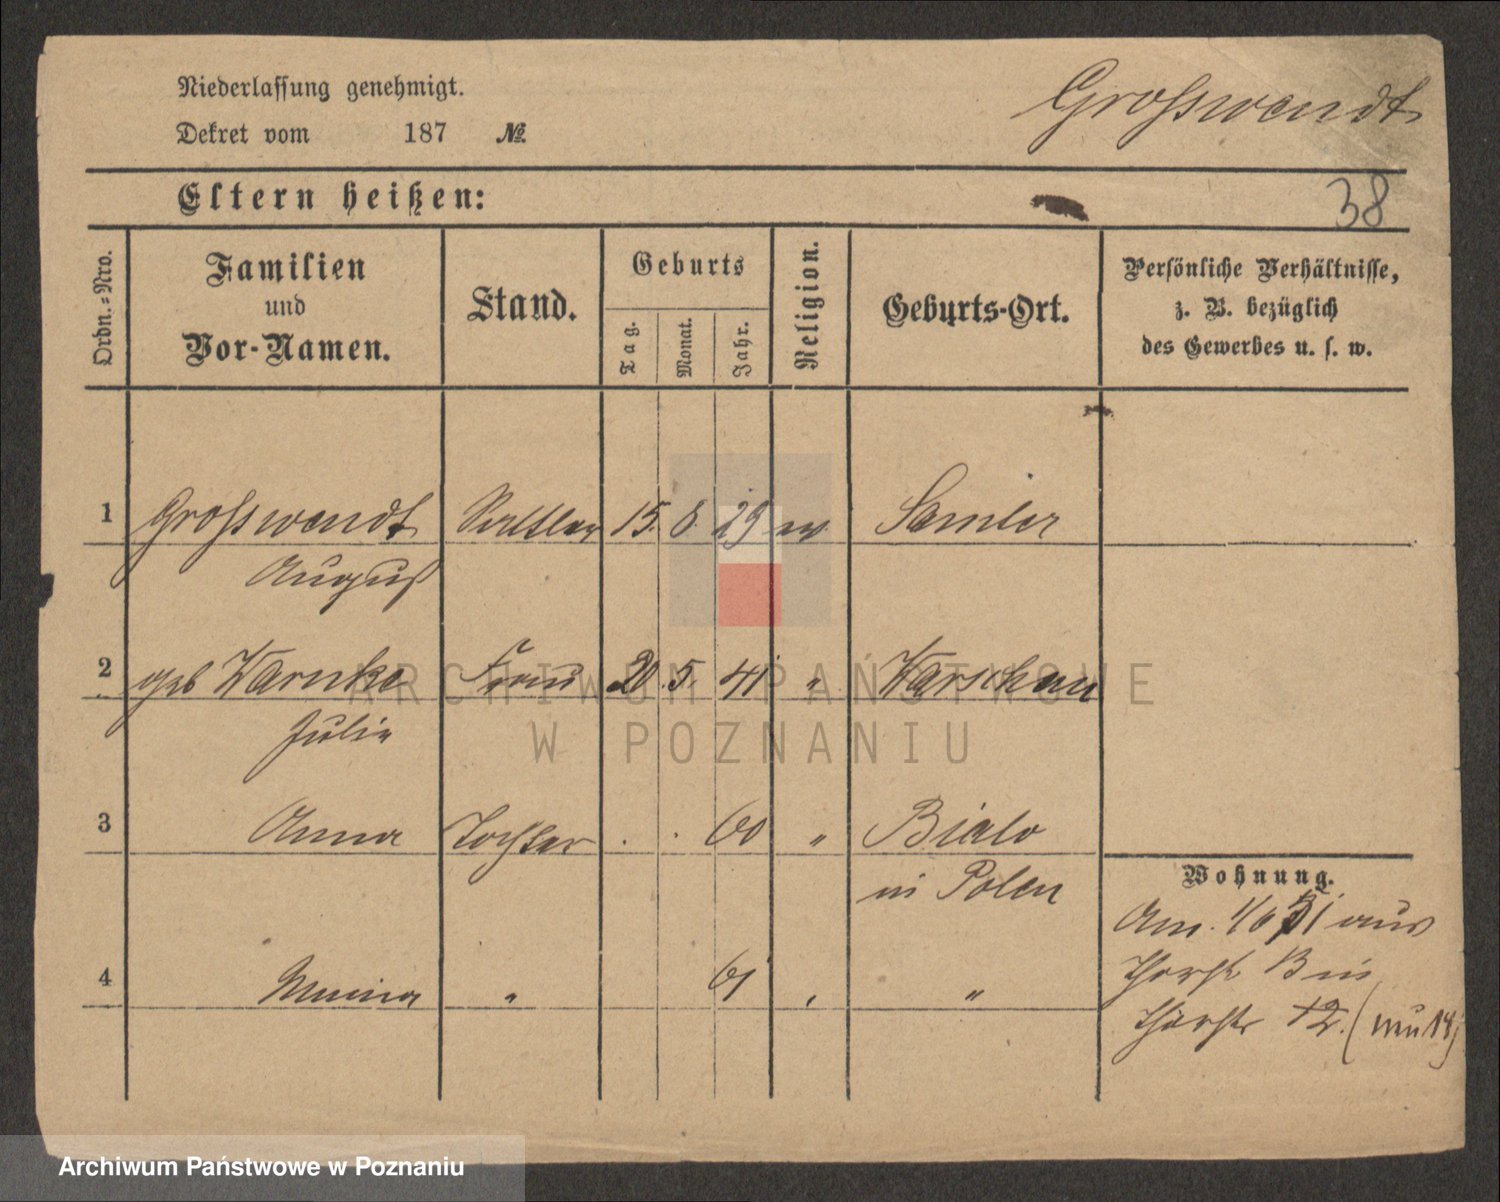 Niederlassung genehmigt.
Grosswendt
Dekret vom 187 №
Eltern heißen:
38
Ordn.-Nro.
Familien und Vor-Namen.
Stand.
Geburts
Tag.
Monat.
Jahr.
Religion.
Geburts-Ort.
Persönliche Verhältnisse,
z. B. bezüglich
des Gewerbes u. s. w.
1 Grosswendt 15. 8. 29 ev Samter
August
2 geb Warnke Frau 20. 5. 41 " Warschau
Julie
3 Anna Tochter . . 60 " Bialo
in Polen
Wohnung.
Am. 1/6 71 aus
4 " 61 " "
12.
ARCHIWUM PAŃSTWOWE
W POZNANIU
Archiwum Państwowe w Poznaniu